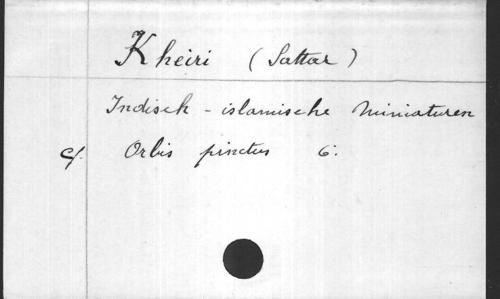 Kheiri (Sattar)
Indisch - islamische Miniaturen
cf. Orbis pinctus 6.